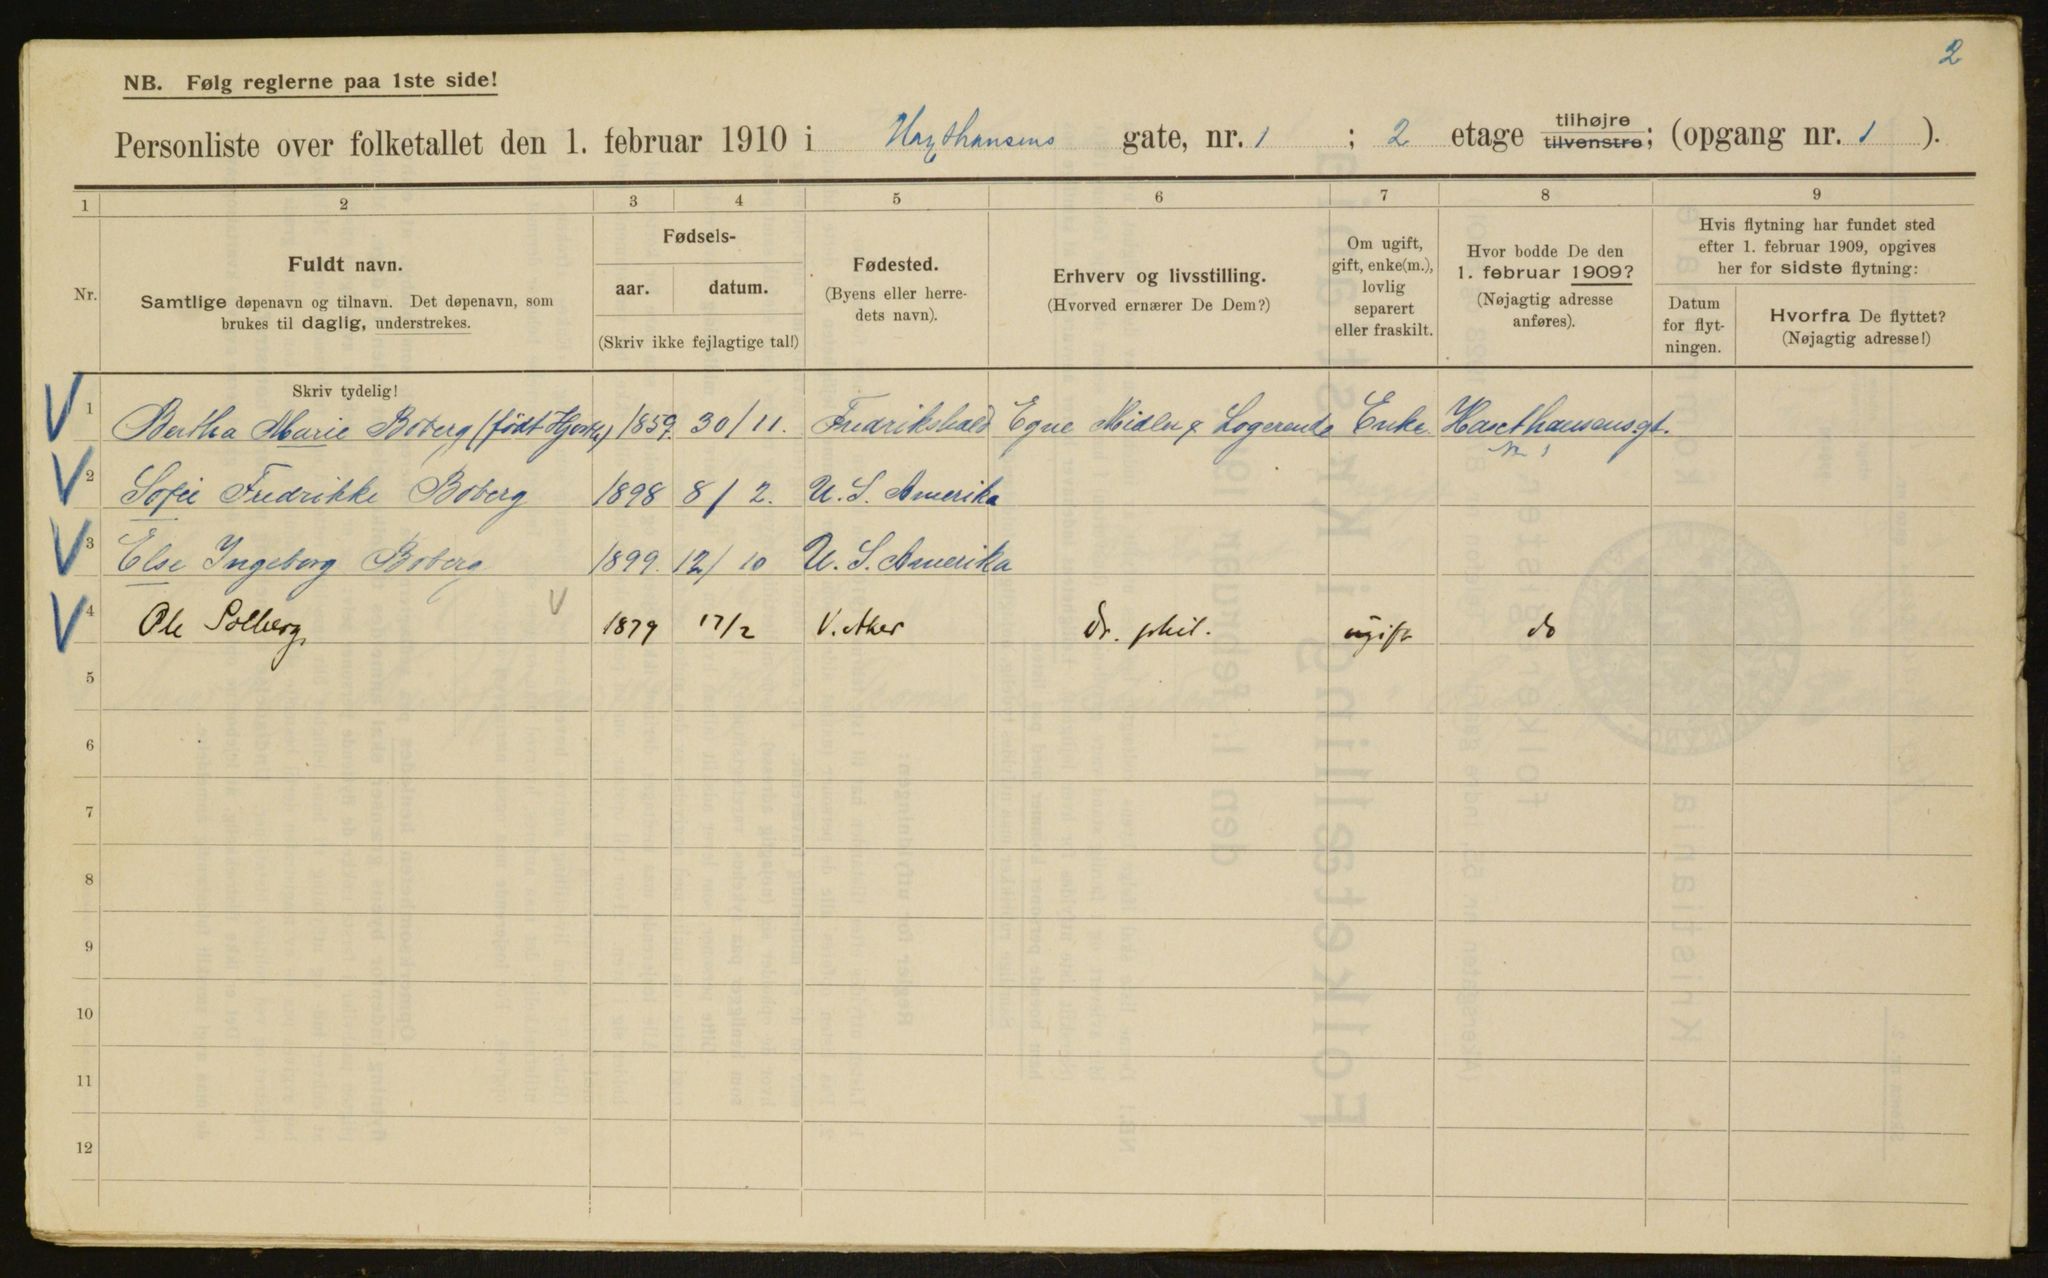 2
NB. Følg reglerne paa 1ste side!
Personliste over folketallet den 1. februar 1910 i Haxthausens gate, nr. 1 ; 2 etage tilhøjre tilvenstre; (opgang nr. 1 ).
1 2 3 4 5 6 7 8 9
Nr.
Fuldt navn.
Samtlige døpenavn og tilnavn. Det døpenavn, som
brukes til daglig, understrekes.
Fødsels-
aar. datum.
(Skriv ikke fejlagtige tal!)
Fødested.
(Byens eller herre-
dets navn).
Erhverv og livsstilling.
(Hvorved ernærer De Dem?)
Om ugift,
gift, enke(m.),
lovlig
separert
eller fraskilt.
Hvor bodde De den
1. februar 1909?
(Nøjagtig adresse
anføres).
Hvis flytning har fundet sted
efter 1. februar 1909, opgives
her for sidste flytning:
Datum
for flyt-
ningen.
Hvorfra De flyttet?
(Nøjagtig adresse!)
Skriv tydelig!
1 Bertha Marie Boberg (født) 1859. 30/11. Fredrikshald Egne Midler & Logerende Enke. Haxthausensgt.
nr 1
2 Sofie Fredrikke Boberg 1898 8/2. U. S. Amerika
3 Else Ingeborg Boberg 1899. 12/10 U. S. Amerika
4 Ole Solberg 1879 17/2 V. Aker Dr. phil. ugift do
5
6
7
8
9
10
11
12